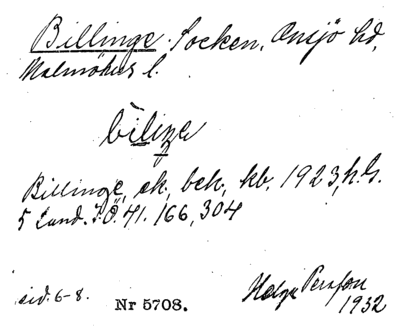 Billinge Socken, Onsjö hd,
Malmöhus l.
Billinge, sk, bek, kb. 1923, h. G.
5 Lund. 166, 304
sid. 6-8. Nr 5708. Helge Persson
1932